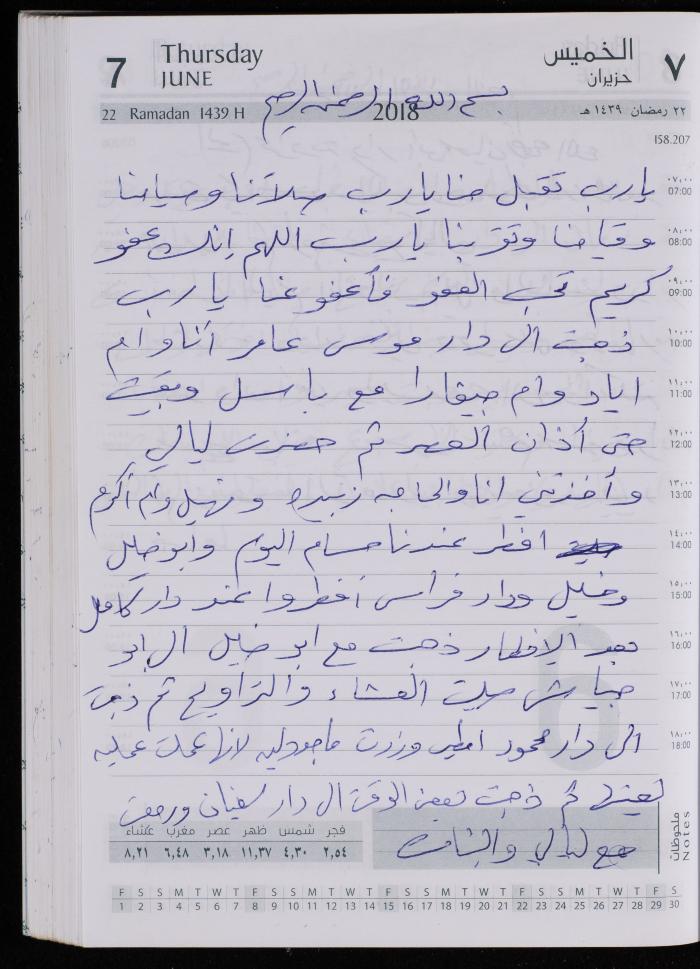 7 Thursday JUNE الخميس حزيران ٧
22 Ramadan 1439 H 2018 ٢٢ رمضان ١٤٣٩ هـ
بسم الله الرحمن الرحيم
158.207
٠٧:٠٠ 07:00 يارب تقبل منا يارب صلاتنا وصيامنا
٠٨:٠٠ 08:00 وقيامنا وتوبنا يارب اللهم إنك عفو
٠٩:٠٠ 09:00 كريم تحب العفو فأعفو عنا يارب
١٠:٠٠ 10:00 ذهبت ال دار موسى عامر أنا وام
١١:٠٠ 11:00 اياد وام جيفارا مع باسل وبقيت
١٢:٠٠ 12:00 حتى أذان العصر ثم حضرت ليالي
١٣:٠٠ 13:00 وأخذتني انا والحاجه زبيده وام أكرم
١٤:٠٠ 14:00 افطر عندنا حسام اليوم وابو خليل
١٥:٠٠ 15:00 وخليل ودار فراس أفطروا عند دار كامل
١٦:٠٠ 16:00 بعد الإفطار ذهبت مع ابو خليل ال ابو
١٧:٠٠ 17:00 صليت العشاء والتراويح ثم ذهبت
١٨:٠٠ 18:00 الى دار محمود وزرت لانها عملت عمليه
لعينها ثم ذهبت بعض الوقت ال دار سفيان ورجعت
مع ليالي والبنات
ملاحظات Notes
فجر شمس ظهر عصر مغرب عشاء
٢,٥٤ ٤,٣٠ ١١,٣٧ ٣,١٨ ٦,٤٨ ٨,٢١
F S S M T W T F S S M T W T F S S M T W T F S S M T W T F S
1 2 3 4 5 6 7 8 9 10 11 12 13 14 15 16 17 18 19 20 21 22 23 24 25 26 27 28 29 30